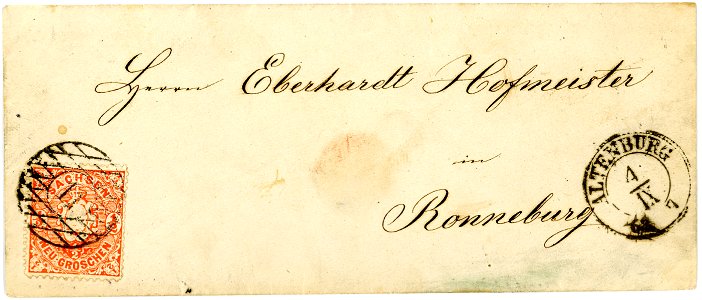 Herrn Eberhardt Hofmeister
in
Ronneburg
ALTENBURG
4
IX
7
SACHSEN
NEU-GROSCHEN